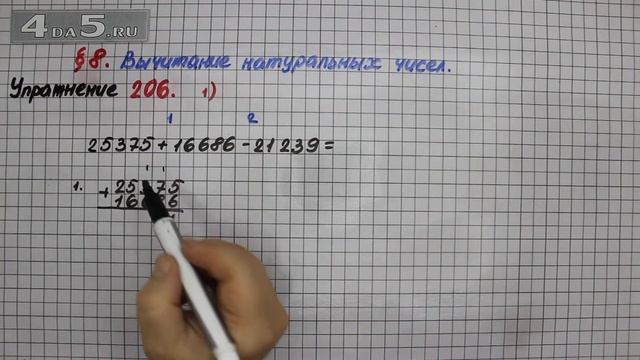 4DA5.RU
§8. Вычитание натуральных чисел.
Упражнение 206. 1)
1 2
25375+16686-21239=
1. +25375
16686